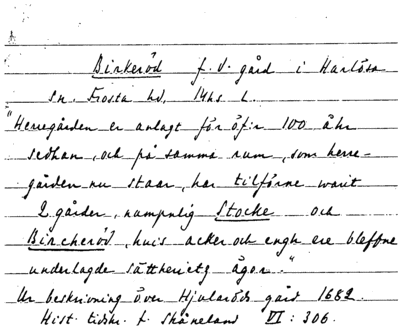 Birkeröd f. d. gård i Harlösa
sn. Frosta hd, Mhs l.
"Herregården er anlagt för öf:r 100 åhr
sedhan, och på samma rum, som herre-
gården nu staar, har tilförne warit
2 gårder, nampnlig Stocke och
Bircheröd, huis acker och engh ere bleffne
underlagde sätherietz ägor."
Ur beskrivning över Hjularöds gård 1682.
Hist. tidskr. f. Skåneland VI: 306.